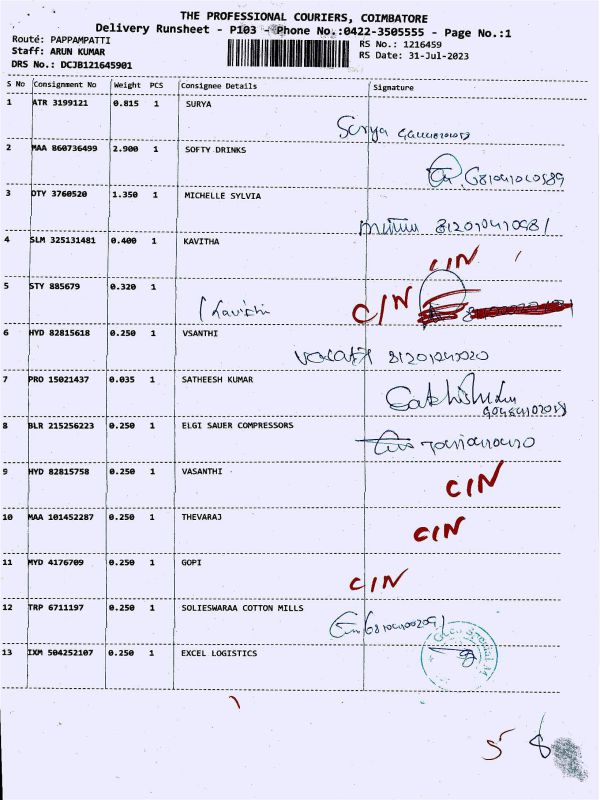 THE PROFESSIONAL COURIERS, COIMBATORE
Delivery Runsheet - P103 - Phone No.:0422-3505555 - Page No.:1
Route: PAPPAMPATTI
RS No.: 1216459
Staff: ARUN KUMAR
RS Date: 31-Jul-2023
DRS No.: DCJB121645901
S No Consignment No Weight PCS Consignee Details Signature
1 ATR 3199121 0.815 1 SURYA
Surya
2 MAA 860736499 2.900 1 SOFTY DRINKS
3 DTY 3760520 1.350 1 MICHELLE SYLVIA
4 SLM 325131481 0.400 1 KAVITHA
C/N
5 STY 885679 0.320 1
C/N
6 HYD 82815618 0.250 1 VSANTHI
7 PRO 15021437 0.035 1 SATHEESH KUMAR
8 BLR 215256223 0.250 1 ELGI SAUER COMPRESSORS
9 HYD 82815758 0.250 1 VASANTHI
C/N
10 MAA 101452287 0.250 1 THEVARAJ
C/N
11 MYD 4176709 0.250 1 GOPI
C/N
12 TRP 6711197 0.250 1 SOLIESWARAA COTTON MILLS
13 IXM 504252107 0.250 1 EXCEL LOGISTICS
5 8